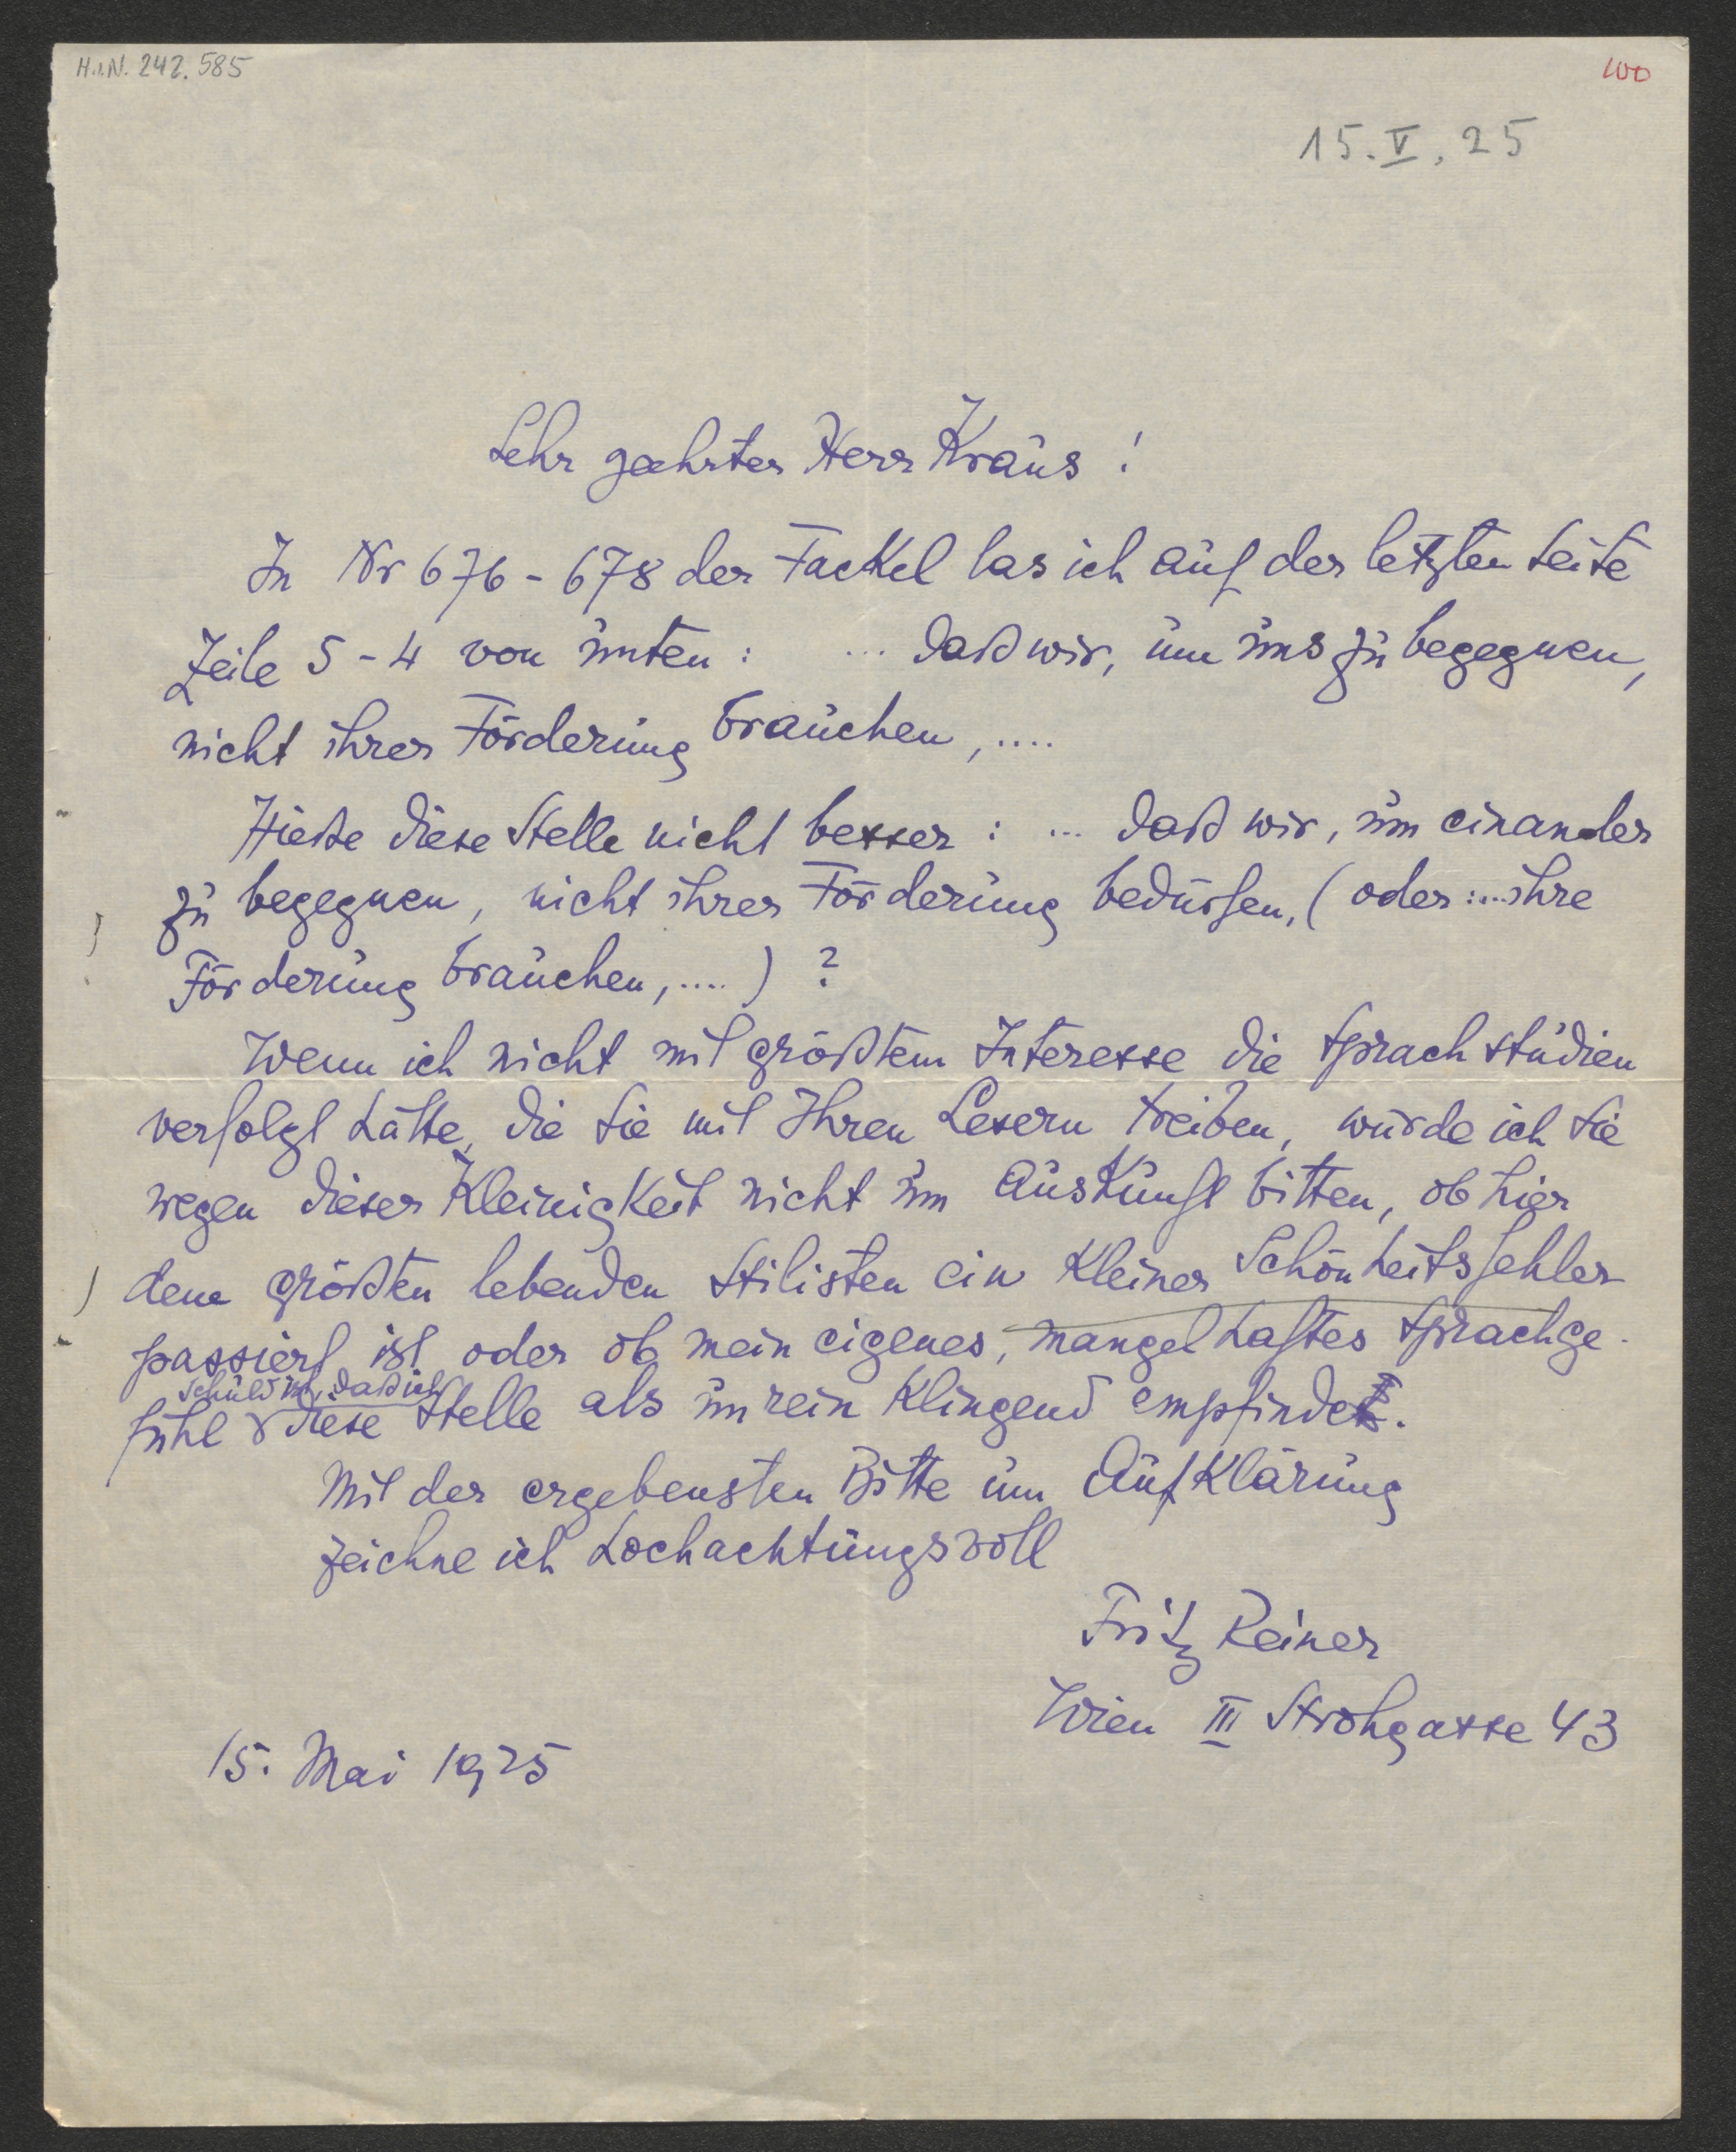 H.I.N. 242.585
100
15. V. 25
Sehr geehrter Herr Kraus!
In Nr 676-678 der Fackel las ich auf der letzten Seite
Zeile 5-4 von unten: ... daß wir, um uns zu begegnen,
nicht ihrer Förderung brauchen, ....
Hieße diese Stelle nicht besser: ... daß wir, um einander
zu begegnen, nicht ihrer Förderung bedürfen, (oder:...ihre
Förderung brauchen, ....) ?
Wenn ich nicht mit größtem Interesse die Sprachstudien
verfolgt hätte, die Sie mit Ihren Lesern treiben, würde ich Sie
wegen dieser Kleinigkeit nicht um Auskunft bitten, ob hier
dem größten lebenden Stilisten ein kleiner Schönheitsfehler
passiert ist oder ob mein eigenes, mangelhaftes Sprachge-
schuld ist, daß ich
fühl diese Stelle als unrein klingend empfinde.
Mit der ergebensten Bitte um Aufklärung
zeichne ich hochachtungsvoll
Fritz Reiner
Wien III Strohgasse 43
15. Mai 1925